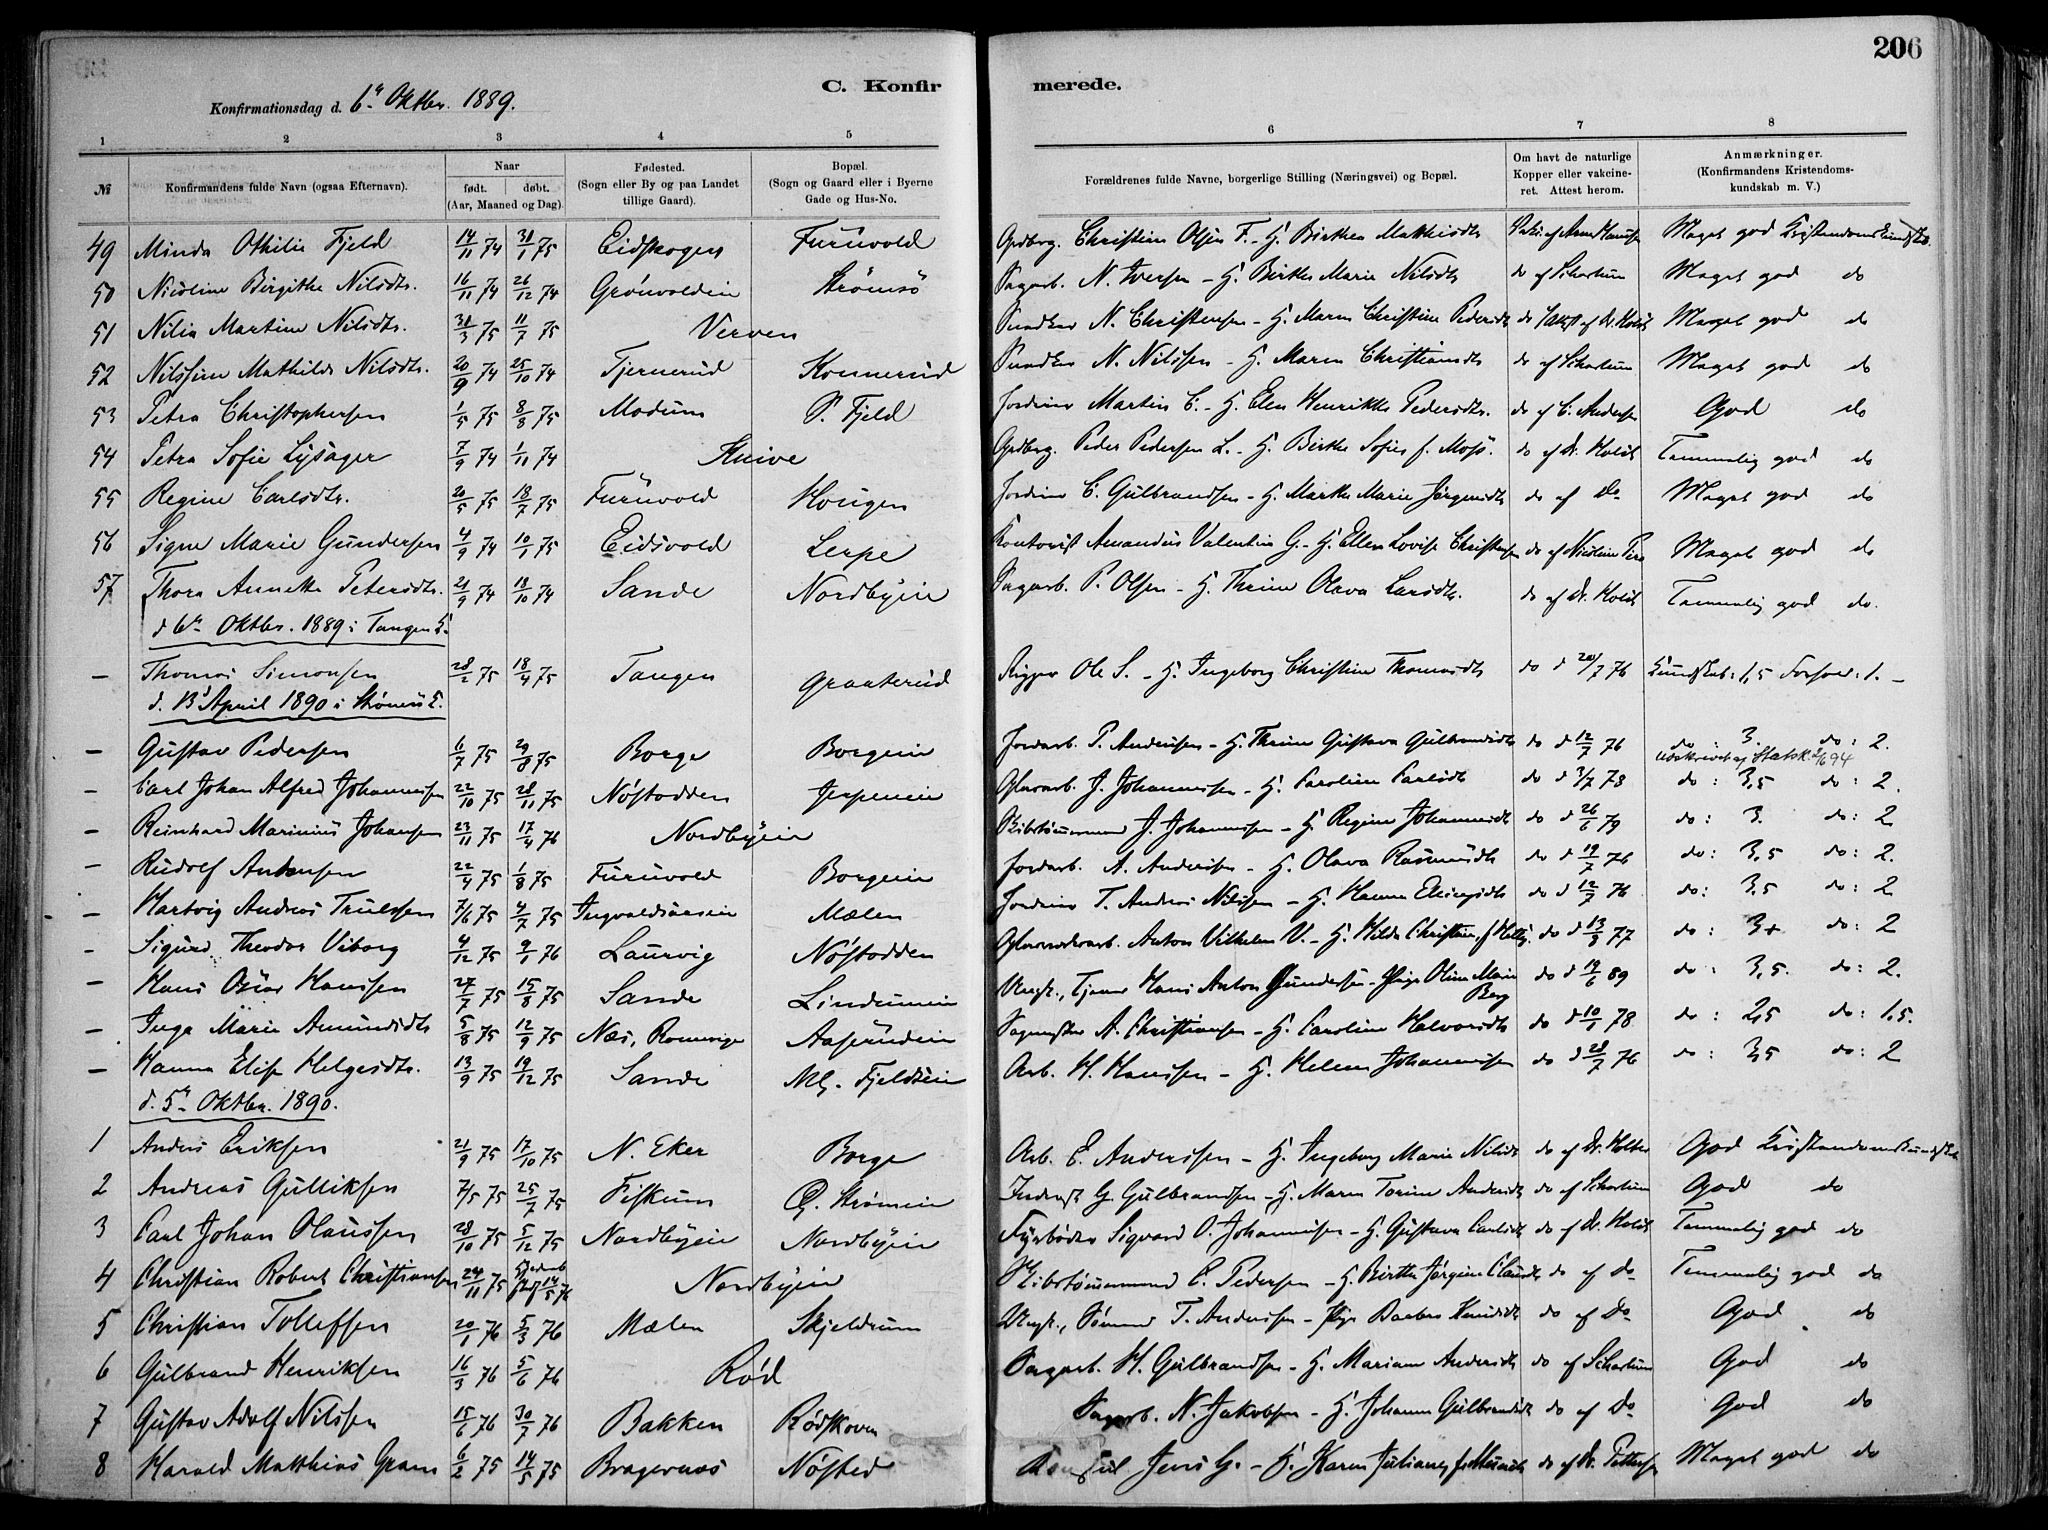 206
C. Konfirmerede.
Konfirmationsdag d. 6te Oktbr. 1889.
1 2 3 4 5 6 7 8
№ Konfirmandens fulde Navn (ogsaa Efternavn). Naar født. døbt. (Aar, Maaned og Dag). Fødested. (Sogn eller By og paa Landet tillige Gaard). Bopæl. (Sogn og Gaard eller i Byerne Gade og Hus-No. Forældrenes fulde Navne, borgerlige Stilling (Næringsvei) og Bopæl. Om havt de naturlige Kopper eller vakcineret. Attest herom. Anmærkninger. (Konfirmandens Kristendomskundskab m. V.)
49 Minda Othilie Fjeld 14/11 74 31/1 75 Eidskogen Furuvold Grdbrg. Christian Olsen F. - H. Birthea Mathisdtr Meget god Kristendomskundskb.
50 Nicoline Birgithe Nilsdtr. 16/11 74 26/12 74 Grønvoldein Strømsø Sagarb. N. Iversen - H. Birthe Marie Nilsdtr do af Schartum Meget god do
51 Nilia Martine Nilsdtr. 31/3 75 11/7 75 Verven N. Christensen - H. Maren Christine Pedersdtr do Attest af Dr. Holst Meget god do
52 Nilssine Mathilde Nilsdtr. 20/9 74 25/10 74 Tjernerud Konnerud N. Nilssen - H. Maren Christiansdtr do af Schartum Meget god do
53 Petra Christophersen 1/5 75 8/8 75 Modum S. Fjeld Jordeier Martin C. - H. Elen Henrikke Pedersdtr. do af C. Andersen God do
54 Petra Sofie Lysager 7/9 74 1/11 74 Knive Grdbrg. Peder Pedersen L. - H. Birthe Sofie f. Moss. do af Dr. Holst Temmelig god do
55 Regine Carlsdtr. 20/5 75 18/7 75 Furuvold Hougen Jordeier C. Gulbrandsen - H. Marthe Marie Jørgensdtr do af Do Meget god do
56 Signe Marie Gundersen 4/9 74 10/1 75 Eidsvold Lerpe Kontorist Amandus Valentin G. - H. Ellen Lovise Christensen do af Nicoline Meget god do
57 Thora Annette Petersdtr. 21/9 74 18/10 74 Sande Nordbyein Sagarb. P. Olsen - H. Thrine Olava Larsdtr. do af Dr. Holst Temmelig god do.
d 6te Oktbr. 1889 i Tangen K.
— Thomas Simonsen 28/2 75 18/4 75 Tangen Graaterud Rigger Ole S. - H. Ingeborg Christine Thomasdtr do d 20/7 76 Kundskab: 1,5 Forhold: 1. —
d. 13de April 1890 i Strømsø K.
— Gustav Pedersen 6/7 75 29/8 75 Borge Borgein Jordarb. P. Andersen - H. Thrine Gustava Gulbrandsdtr do d 12/7 76 do 3. do: 2.
Udskrevet af Statsk. 2/6 94
— Carl Johan Alfred Johannessen 22/10 75 28/11 75 Nøstodden Jerpenein Glasarb. J. Johannessen - H. Caroline Carlsdtr do d 3/7 78 do: 3,5 do: 2.
— Reinhard Marinius Johansen 23/11 75 17/4 76 Nordbyein Skibstømmermand J. Johannessen - H. Regine Johannesdtr do d 26/6 79 do: 3. do: 2
— Rudolf Antonsen 22/4 75 1/8 75 Furuvold Borgein Jordarb. A. Andersen - H. Olava Rasmusdtr do d 19/7 76 do: 3,5 do: 2.
— Hartvig Andreas Trulssen 7/6 75 4/7 75 Ingvaldsaasein Mælen Jordeier T. Andreas Nilssen - H. Hanna Ellingsdtr do d 12/7 76 do: 3,5 do: 2
— Sigurd Theodor Viborg 4/12 75 9/1 76 Laurvig Nøstodden Anton Vilhelm V. - H. Hilda Christine do d 13/9 77 do: 3+ do: 2
— Hans Oskar Hanssen 27/7 75 15/8 75 Sande Lindumein Ungk., Tjener Hans Anton Gundersen - Pige Oline Marie Berg do d 19/6 89 do: 3,5. do: 2.
— Inga Marie Amundsdtr 5/8 75 12/9 75 Næs, Romerige Aaserudein Sagmester A. Christiansen - H. Caroline Halvorsdtr do d 10/1 78 do: 2,5 do: 1,5.
— Hanna Elise Helgesdtr. 13/9 75 19/12 75 Sande Ml. Fjeldsein Arb. H. Hanssen - H. Helene Johannessen do d 28/7 76 do: 3,5 do: 2
d. 5te Oktbr. 1890.
1 Anders Eriksen 21/9 75 17/10 75 N. Eker Borge Arb. E. Anderssen - H. Ingeborg Marie Nilsdtr do af Dr. Holter God Kristendomskundskab
2 Andreas Gulliksen 7/5 75 25/7 75 Fiskum G. Strømein Inderst G. Gulbrandsen - H. Maren Torine Andersdtr do af Schartum God do
3 Carl Johan Olaussen 28/10 75 5/12 75 Nordbyein Nordbyein Fyrbøder Sigvard O. Johannessen - H. Gustava Carlsdtr do af Dr. Holst Temmelig god do
4 Christian Robert Christiansen 24/11 75 14/5 76 Nordbyein Skibstømmermand C. Pedersen - H. Birthe Jørgine Clausdtr do af do Temmelig god do
5 Christian Tollefsen 20/1 76 5/3 76 Mælen Skjeldrum Ungk., Sømand T. Anderssen - Pige Barbro Knudsdtr do af Do God do
6 Gulbrand Henriksen 16/3 76 5/6 76 Rød Sagarb. H. Gulbrandsen - H. Mariane Andersdtr do af Schartum God do
7 Gustav Adolf Nilssen 15/6 76 30/7 76 Bakken Rødskoven Sagarb. N. Jakobsen - H. Johanne Gulbrandsdtr do af Do God do
8 Harald Matthias Gram 6/2 75 14/5 75 Bragernæs Nøsted Konsul Jens G. - H. Karen Juliane f. Munch do af Dr. Pettersen Meget god do